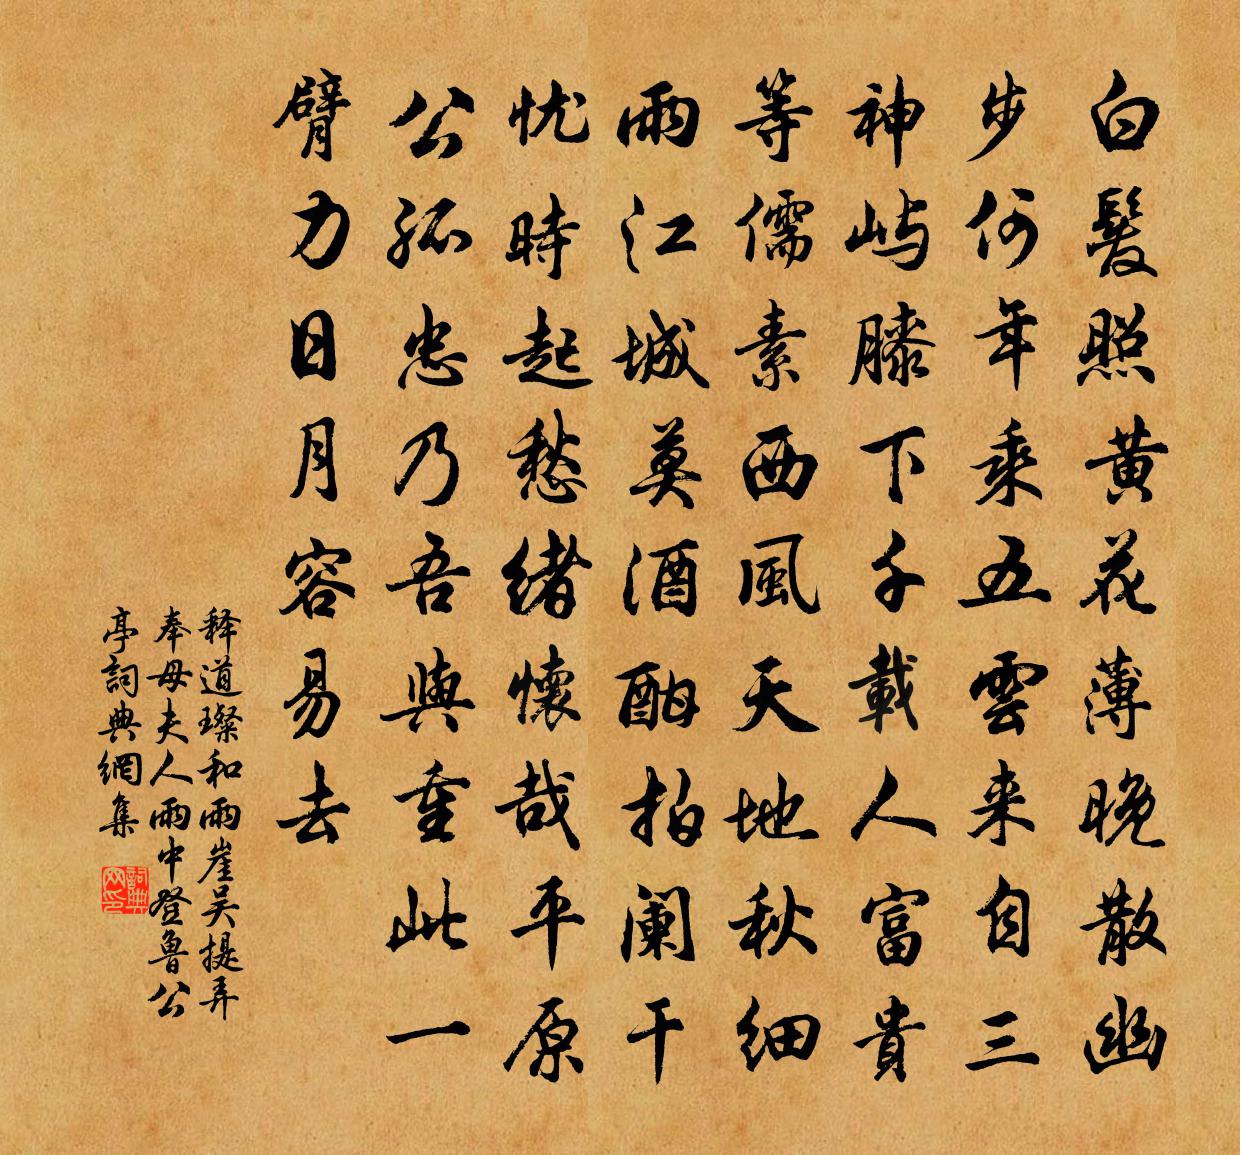 白髮照黄花薄晚散幽
步何年乘五雲来自三
神屿膝下千載人富貴
等儒素西風天地秋細
雨江城莫酒酣拍阑干
忧時起愁緒懷哉平原
公孤忠乃吾與重此一
臂力日月容易去
释道璨和雨崖吴提弄
奉母夫人雨中登魯公
亭詞典網集
詞典網印